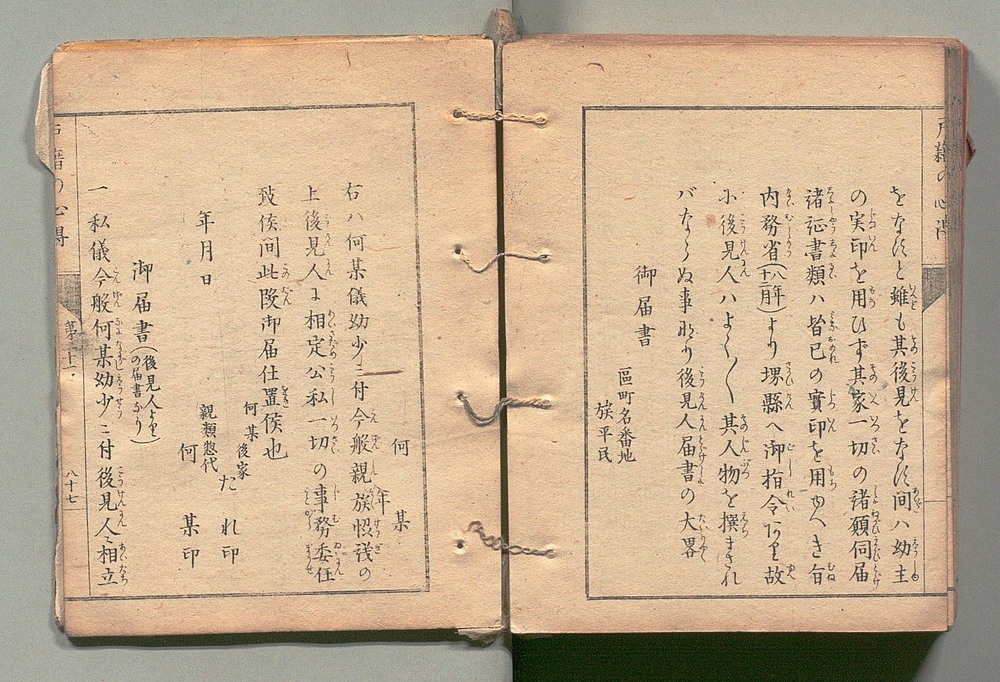 をなすと雖も其後見をなす間ハ幼主
の実印を用ひず其家一切の諸願伺届
諸証書類ハ皆己の實印を用ゆべき旨
内務省(八年十二月)より堺縣へ御指令あり故
に後見人ハよく〳〵其人物を撰まされ
バならぬ事なり後見人届書の大畧
御届書
區町名番地
族平民
何年
何某
右ハ何某儀幼少ニ付今般親族恊議の
上後見人に相定公私一切の事務委任
致候間此段御届仕置候也
何某後家
年月日 たれ印
親類惣代
何某印
御届書(後見人よりの届書なり)
一私儀今般何某幼少ニ付後見人ニ相立
戸籍の心得
第二十一
八十七
戸籍の心得